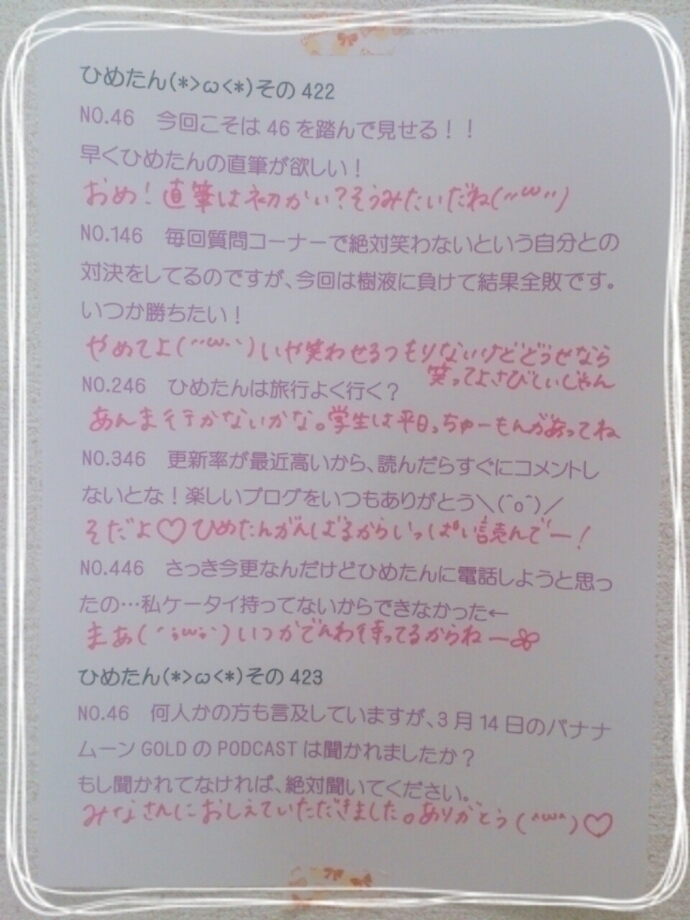 ひめたん(*>ω<*)その422
NO.46　今回こそは46を踏んで見せる！！
早くひめたんの直筆が欲しい！
おめ！直筆は初かい？そうみたいだね(´´ω``)
NO.146　毎回質問コーナーで絶対笑わないという自分との
対決をしてるのですが、今回は樹液に負けて結果全敗です。
いつか勝ちたい！
やめてよ(´´ω``)いや笑わせるつもりないけどどうせなら
笑ってよさびしいじゃん
NO.246　ひめたんは旅行よく行く？
あんま行かないかな。学生は平日っちゅーもんがあってね
NO.346　更新率が最近高いから、読んだらすぐにコメントし
ないとな！楽しいブログをいつもありがとう＼(^o^)／
そだよ♡ひめたんがんばるからいっぱい読んでー！
NO.446　さっき今更なんだけどひめたんに電話しようと思っ
たの…私ケータイ持ってないからできなかった←
まぁ(´;ω;`)いつかでんわ待ってるからねー
ひめたん(*>ω<*)その423
NO.46　何人かの方も言及していますが、3月14日のバナナ
ムーンGOLDのPODCASTは聞かれましたか？
もし聞かれてなければ、絶対聞いてください。
みなさんにおしえていただきました。ありがとう(^ω^)♡